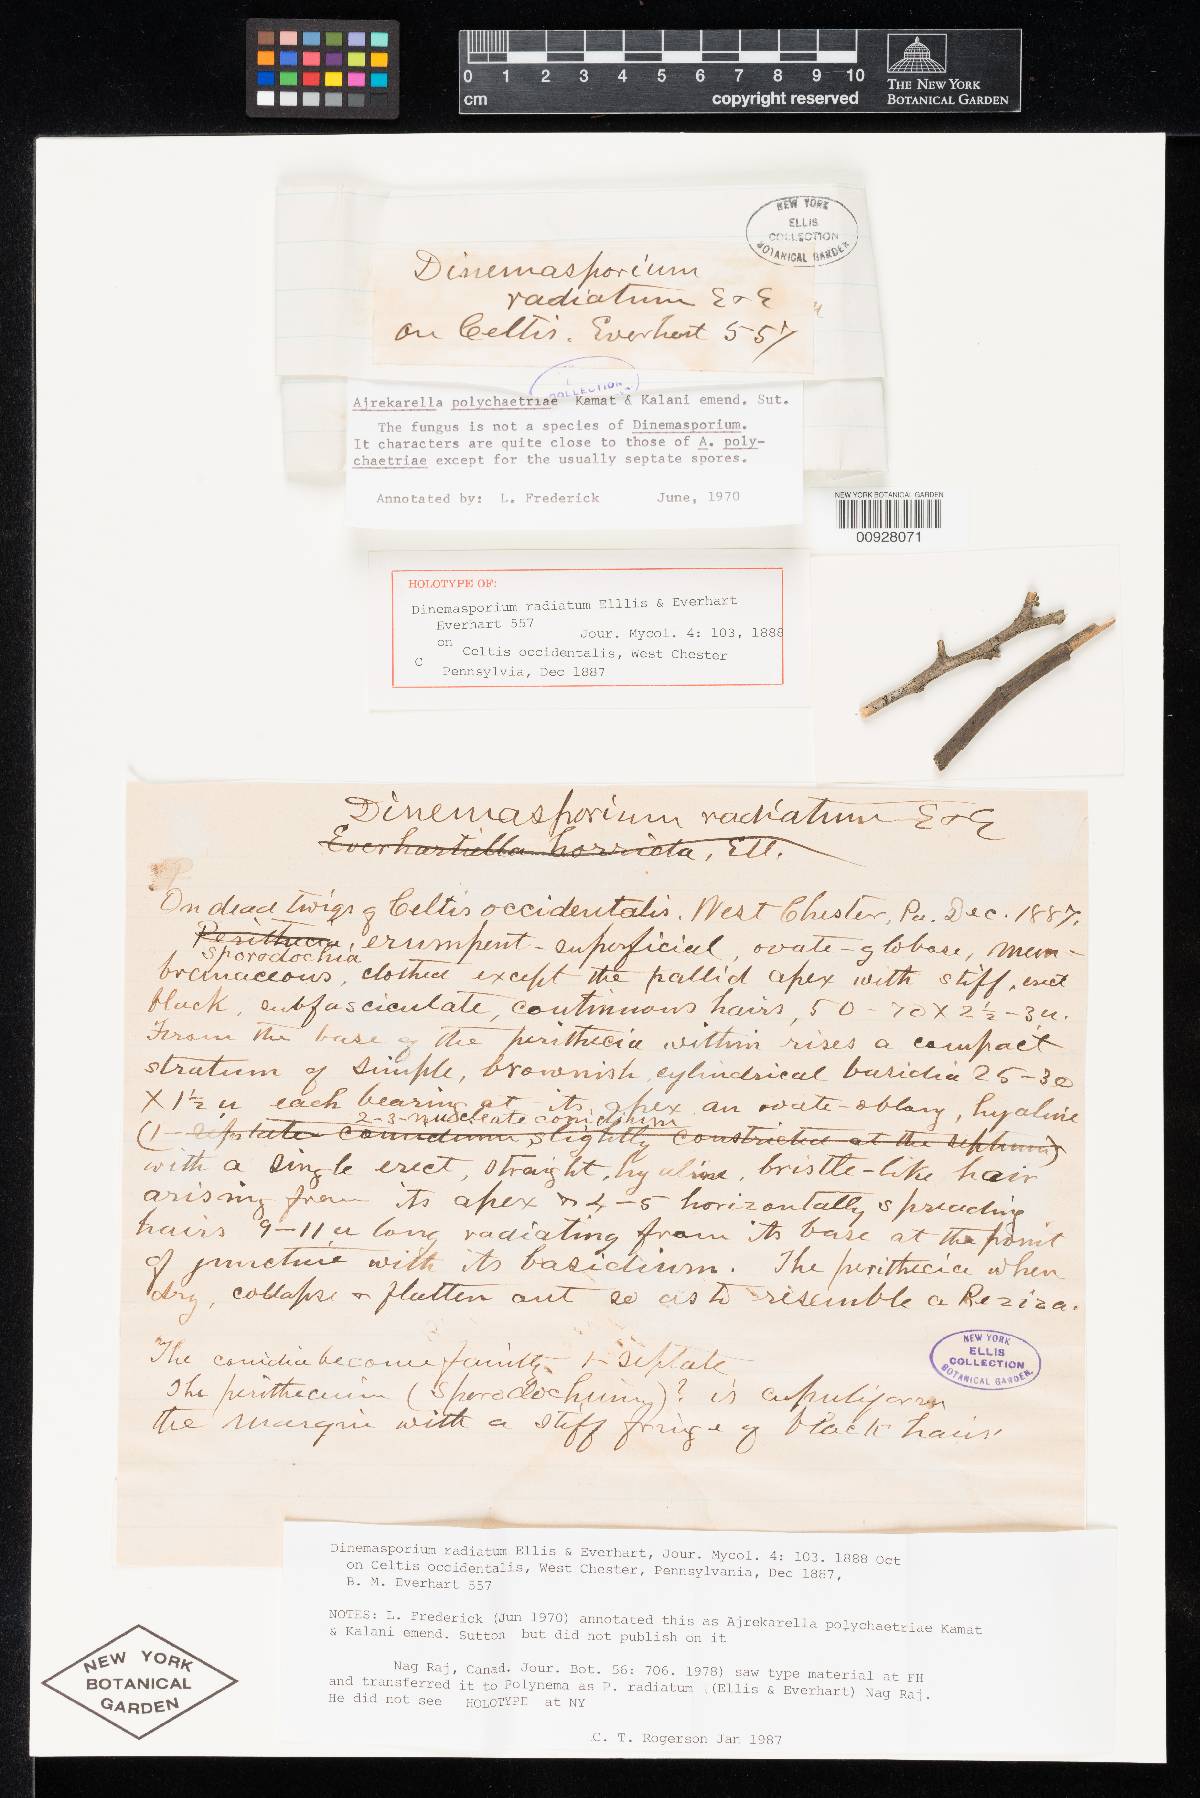 0 1 2 3 4 5 6 7 8 9 10
cm
copyright reserved
THE NEW YORK
BOTANICAL GARDEN
NEW YORK
ELLIS
COLLECTION
BOTANICAL GARDEN
Dinemasporium
radiatum E & E
on Celtis. Everhart 557
COLLECTION
Ajrekarella polychaetriae Kamat & Kalani emend. Sut.
The fungus is not a species of Dinemasporium.
It characters are quite close to those of A. poly-
chaetriae except for the usually septate spores.
Annotated by: L. Frederick June, 1970
NEW YORK BOTANICAL GARDEN
00928071
HOLOTYPE OF:
Dinemasporium radiatum Elllis & Everhart
Everhart 557
Jour. Mycol. 4: 103, 1888
on
Celtis occidentalis, West Chester
C
Pennsylvia, Dec 1887
Dinemasporium radiatum E & E
Everhartiella horrida, Ell.
On dead twigs of Celtis occidentalis. West Chester, Pa. Dec. 1887.
Perithecia, erumpent-superficial, ovate-globose, mem-
sporodochia
branaceous, clothed except the pallid apex with stiff, erect
black, subfasciculate, continuous hairs, 50-70 X 2½-3u.
From the base of the perithecia within rises a compact
stratum of simple, brownish cylindrical basidia 25-30
X 1½ u each bearing at its apex an ovate-oblong, hyaline
2-3-nucleate conidium
(1-septate conidium, slightly constricted at the septum)
with a single erect, straight, hyaline, bristle-like hair
arising from its apex & 4-5 horizontally spreading
hairs 9-11 u long radiating from its base at the point
of juncture with its basidium. The perithecia when
dry, collapse & flatten out so as to resemble a Peziza.
The conidia become faintly 1-septate
The perithecium (Sporodochium)? is cupuliform
the margin with a stiff fringe of black hairs
NEW YORK
ELLIS
COLLECTION
BOTANICAL GARDEN.
Dinemasporium radiatum Ellis & Everhart, Jour. Mycol. 4: 103. 1888 Oct
on Celtis occidentalis, West Chester, Pennsylvania, Dec 1887,
B. M. Everhart 557
NOTES: L. Frederick (Jun 1970) annotated this as Ajrekarella polychaetriae Kamat
& Kalani emend. Sutton but did not publish on it
Nag Raj, Canad. Jour. Bot. 56: 706. 1978) saw type material at FH
and transferred it to Polynema as P. radiatum (Ellis & Everhart) Nag Raj.
He did not see HOLOTYPE at NY
C. T. Rogerson Jan 1987
NEW YORK
BOTANICAL
GARDEN